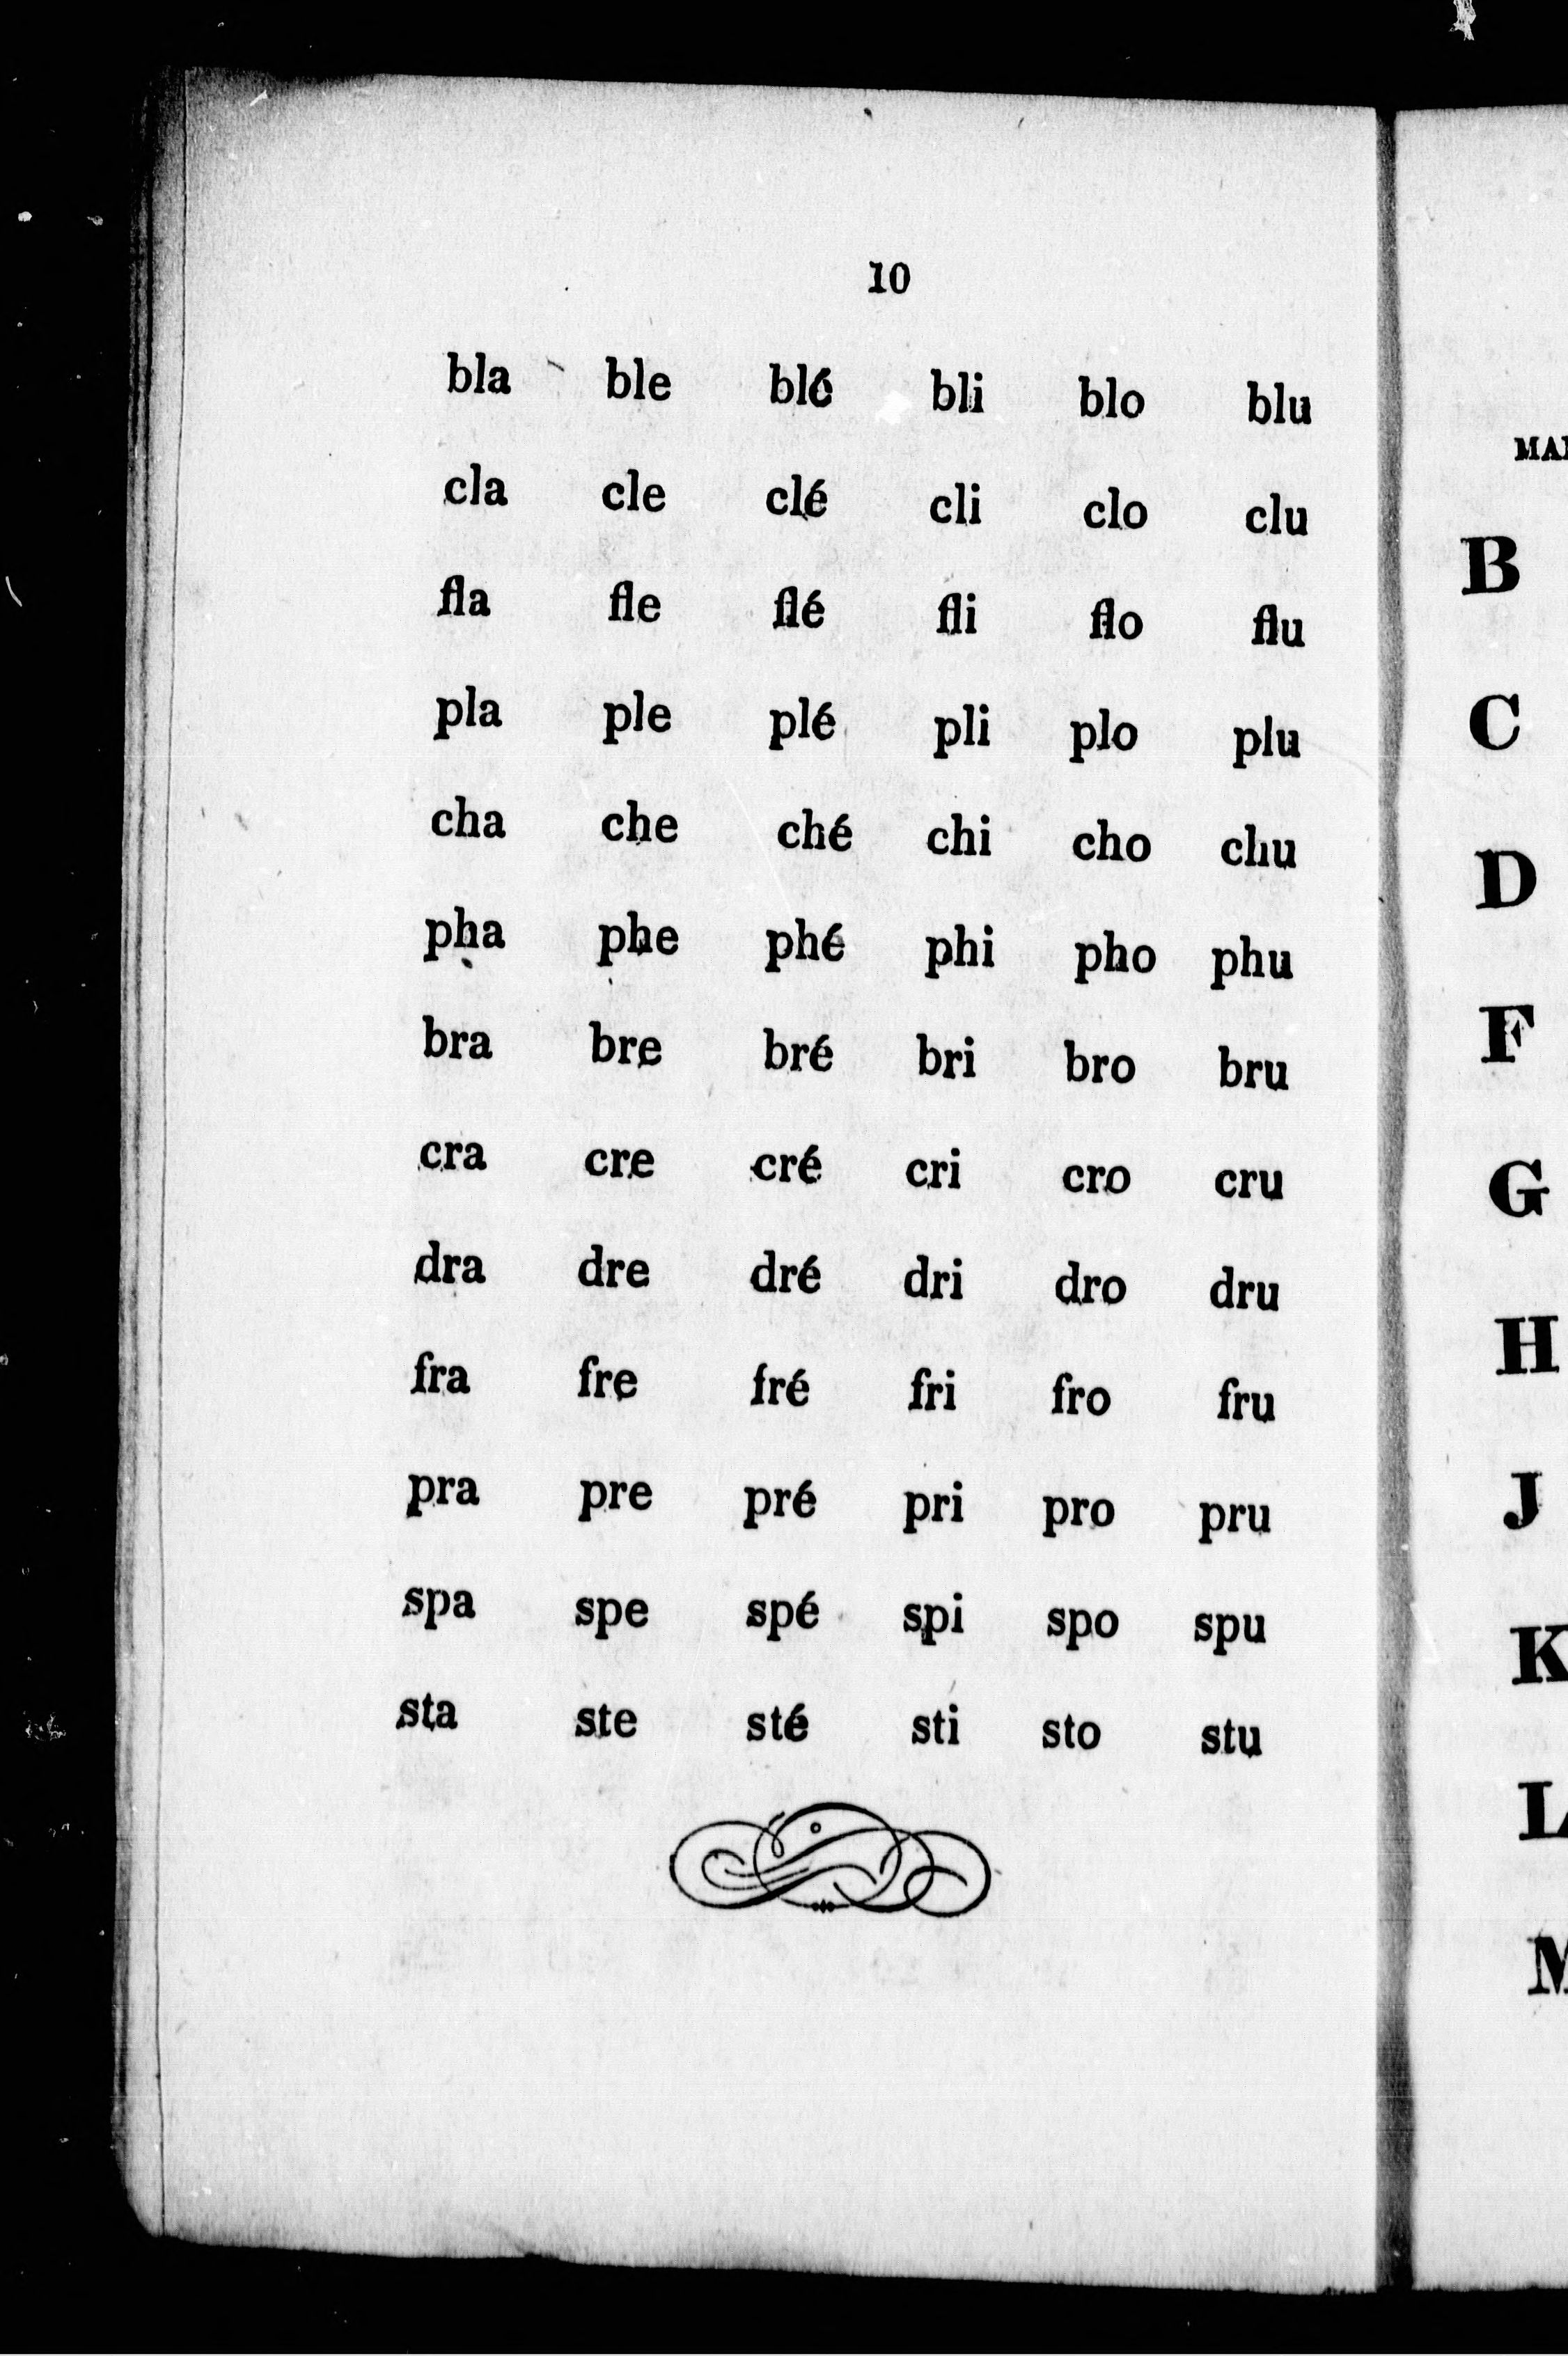 10
bla ble blé bli blo blu
cla cle clé cli clo clu
fla fle flé fli flo flu
pla ple plé pli plo plu
cha che ché chi cho chu
pha phe phé phi pho phu
bra bre bré bri bro bru
cra cre cré cri cro cru
dra dre dré dri dro dru
fra fre fré fri fro fru
pra pre pré pri pro pru
spa spe spé spi spo spu
sta ste sté sti sto stu
B
C
D
F
G
H
J
K
L
M